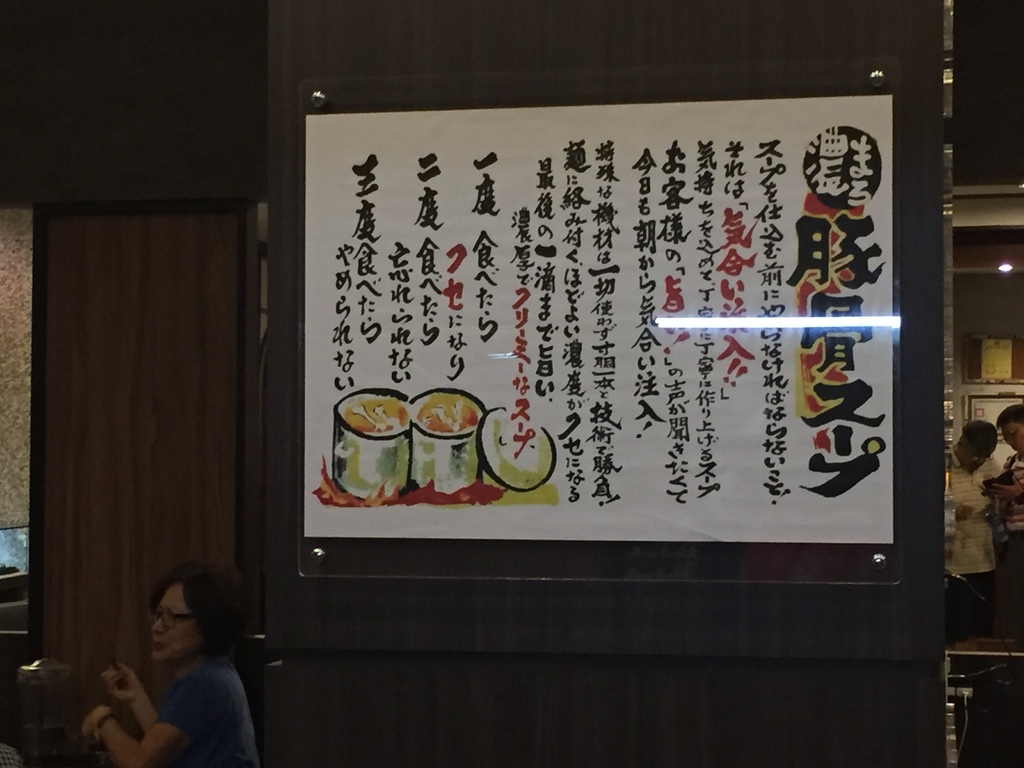 濃厚まろ
豚骨スープ
スープを仕込む前にやらなければならないこと・
それは「気合い注入!!」
気持ちを込めて丁寧に丁寧に作り上げるスープ
お客様の「旨い」の声が聞きたくて
今日も朝から気合い注入!
特殊な機材は一切使わず寸胴一本と技術で勝負!
麺に絡み付く、ほどよい濃度がクセになる
最後の一滴まで旨い、
濃厚でクリーミーなスープ
一度食べたら
クセになり
二度食べたら
忘れられない
三度食べたら
やめられない